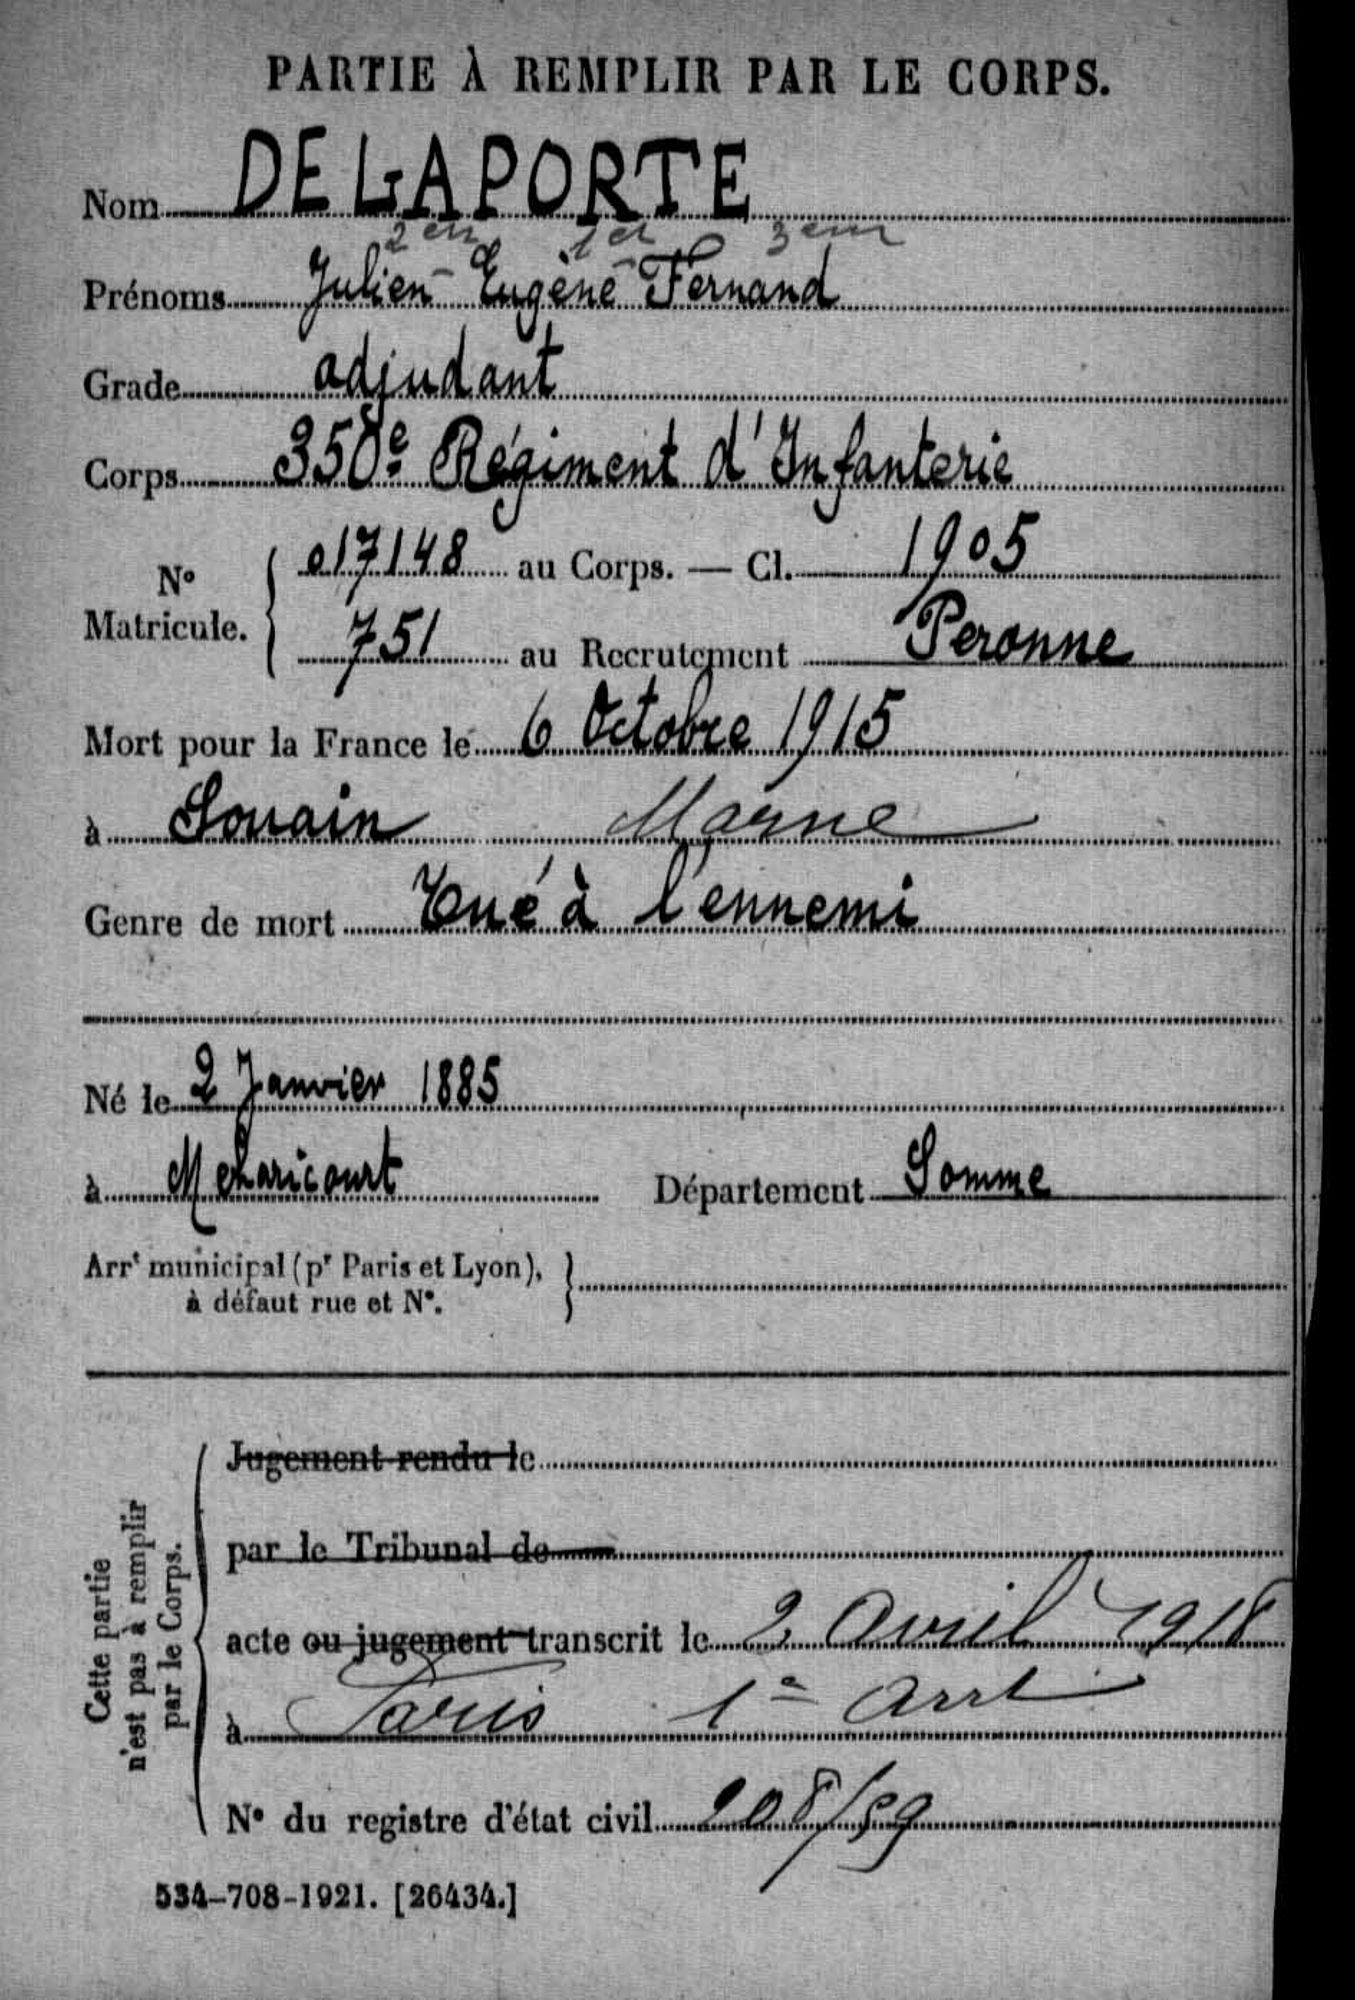 PARTIE À REMPLIR PAR LE CORPS.
Nom DELAPORTE
2em 1er 3em
Prénoms Julien Eugène Fernand
Grade adjudant
Corps 350e Régiment d'Infanterie
N° Matricule. { 017148 au Corps. — Cl. 1905
751 au Recrutement Peronne
Mort pour la France le 6 Octobre 1915
à Souain Marne
Genre de mort Tué à l'ennemi
Né le 2 Janvier 1885
à Meharicourt Département Somme
Arrt municipal (pr Paris et Lyon), }
à défaut rue et N°.
Cette partie
n'est pas à remplir
par le Corps.
Jugement rendu le
par le Tribunal de
acte ou jugement transcrit le 2 Avril 1918
à Paris 1e Arrt
N° du registre d'état civil 208/59
534-708-1921. [26434.]